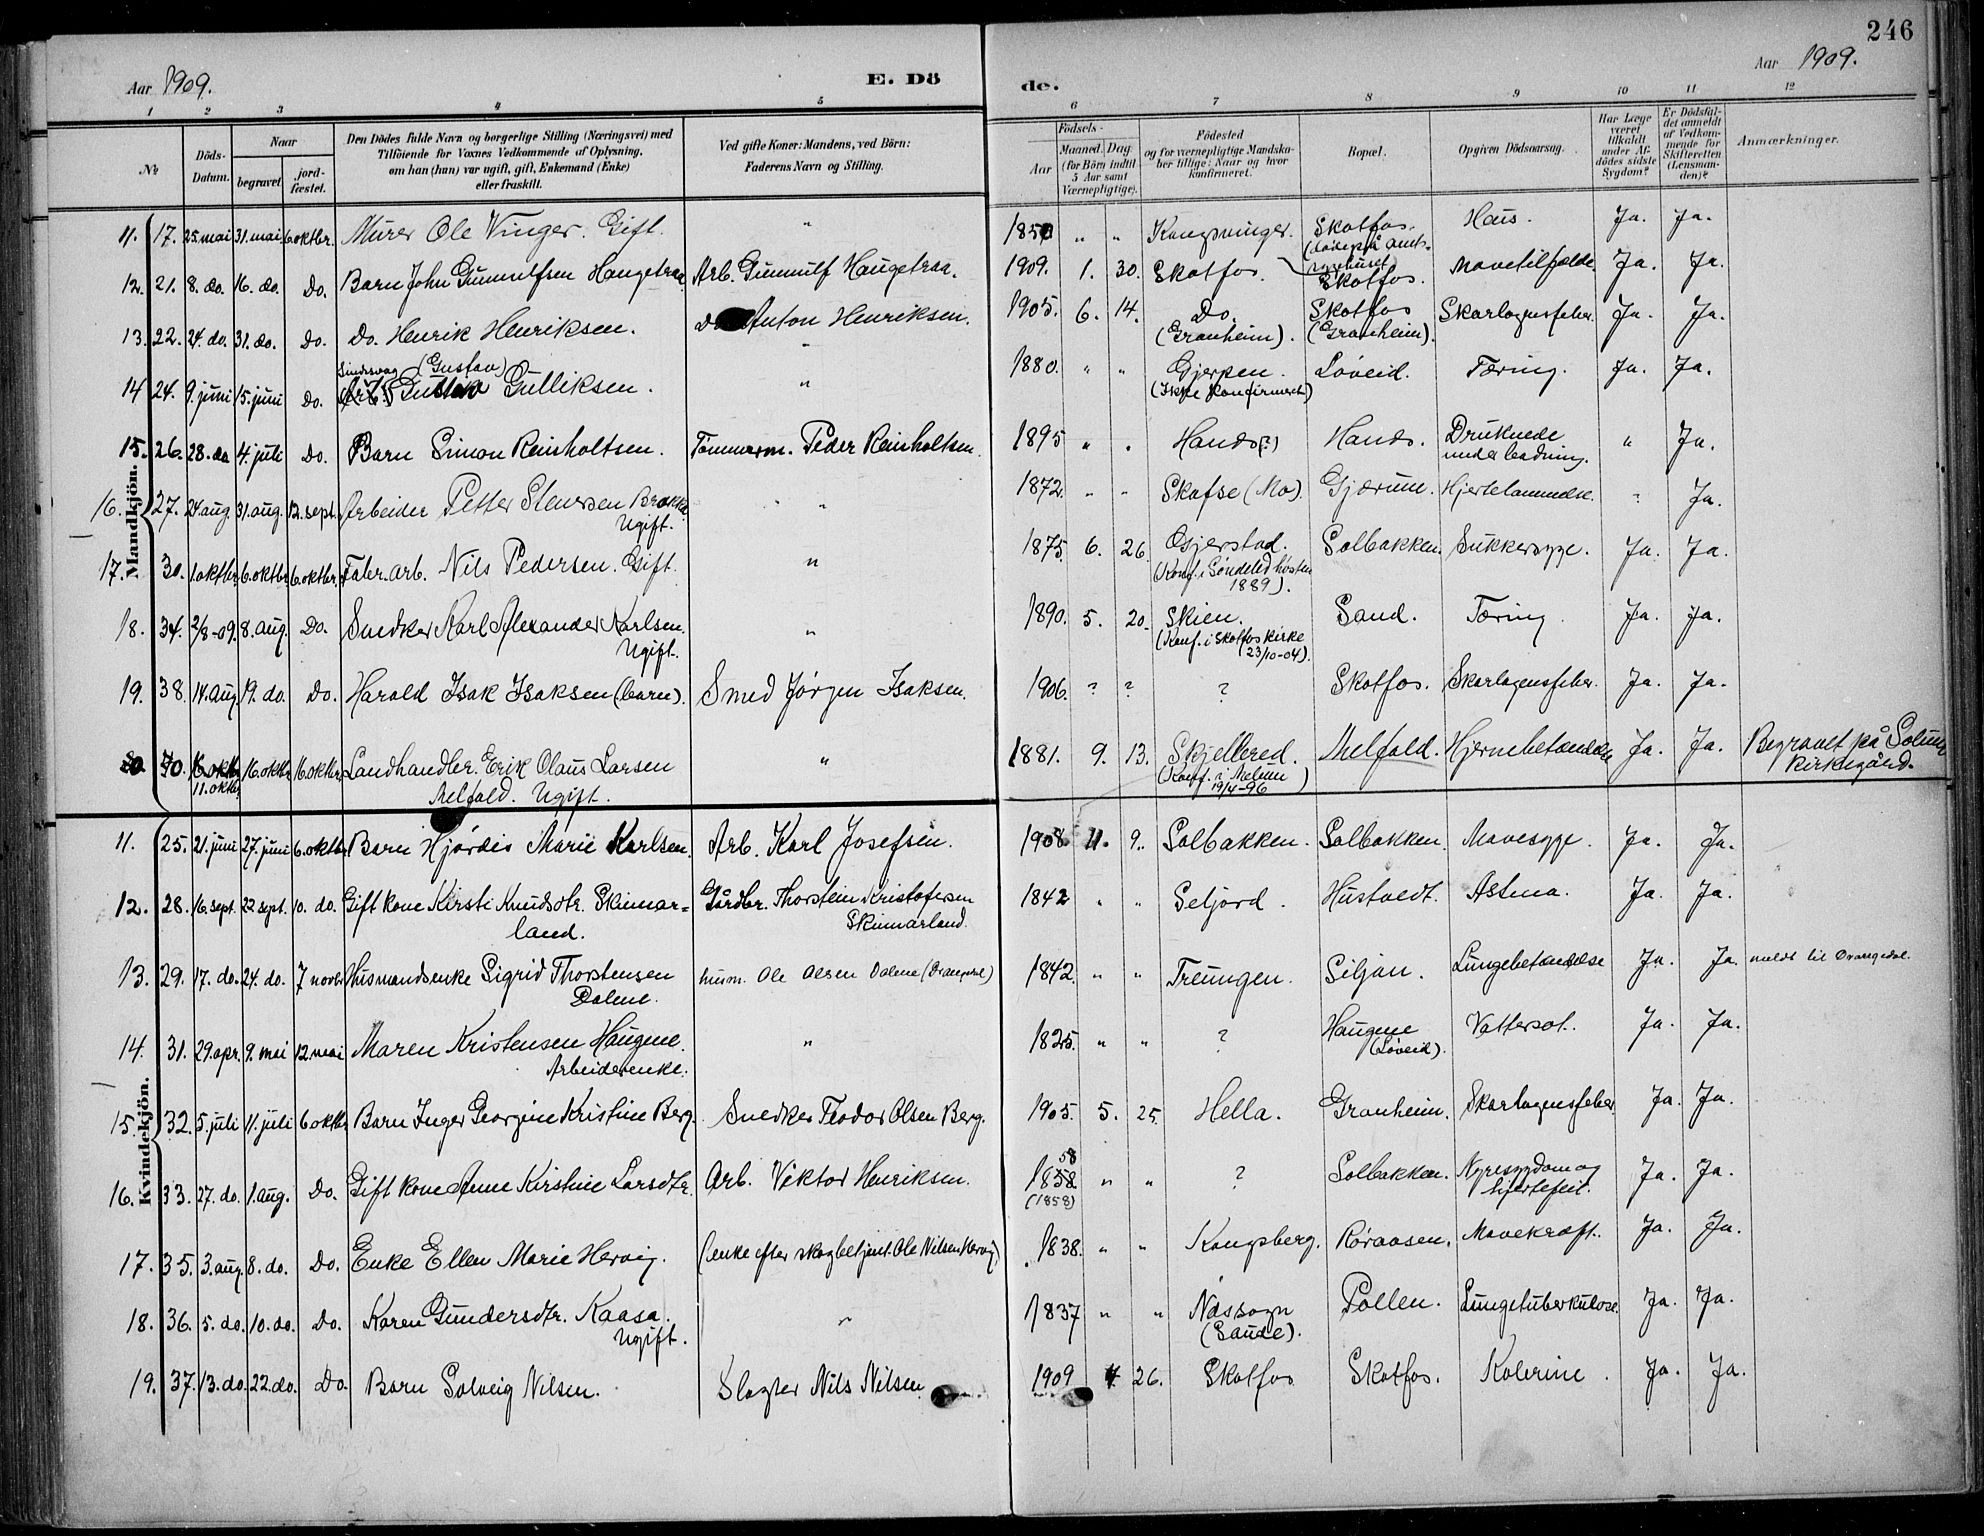 246
Aar 1909. E. Dö de. Aar 1909.
1 2 3 4 5 6 7 8 9 10 11 12
№ Döds-Datum. Naar begravet jord-fæstet. Den Dödes fulde Navn og borgerlige Stilling (Næringsvei) med Tilföiende for Voxnes Vedkommende af Oplysning. om han (hun) var ugift, gift, Enkemand (Enke) eller fraskilt. Ved gifte Koner: Mandens, ved Börn: Faderens Navn og Stilling. Födsels- Aar Maaned. Dag (for Börn indtil 5 Aar samt Værnepligtige). Födested og for værnepligtige Mandska-ber tillige: Naar og hvor konfirmeret. Bopæl. Opgiven Dödsaarsag. Har Læge været tilkaldt under Af-dödes sidste Sygdom? Er Dödsfal-det anmeldt af Vedkom-mende for Skifteretten (Lensman-den)? Anmærkninger.
Mandkjön.
11. 17. 25. mai 31. mai 6 oktbr. Murer Ole Vinger. Gift. " 1850 " " Kongsvinger. Skotfos. (døde på Amts-sygehuset) Ja. Ja.
12. 21. 8. do. 16. do. Do. Barn John Gunnulfsen Haugetraa. Arb. Gunnulf Haugetraa. 1909. 1. 30. Skotfos. Skotfos. Mavetilfælde Ja. Ja.
13. 22. 24. do. 31. do. Do. Do. Henrik Henriksen. Anton Henriksen. 1905. 6. 14. Do. (Granheim). Skotfos (Granheim). Skarlagensfeber. Ja. Ja.
14 24. 9. juni 15. juni Do. Sindssvag (Gustav) Gustav Gulliksen. " 1880. " " Gjerpen. (Ikke konfirmert) Løveid. Tæring. Ja. Ja.
15. 26. 28. do 4. juli Do. Barn Simon Reinholtsen. Tømmerm. Peder Reinholtsen. 1895 " " Hands(?) Hands. Druknede under badning. " Ja.
16. 27. 24 aug. 31. aug. 12. sept. Arbeider Petter Stenersen Brække. Ugift. " 1872. " " Skafse (Mo). Gjærum. Hjertelammelse. " Ja.
17. 30. 1. oktbr. 6. oktbr. 6. oktbr. Fabr. arb. Nils Pedersen. Gift. " 1875. 6. 26 Gjerstad. (Konf. i Søndeled høsten 1889). Solbakken. Sukkersyge. Ja. Ja.
18. 34. 2/8-09. 8. aug. Do. Snedker Karl Alexander Karlsen. Ugift. " 1890. 5. 20. Skien. (Konf. i Skotfos kirke 23/10-04). Sand. Tæring. Ja. Ja.
19. 38. 14. aug. 19. do. Do. Harald Isak Isaksen (barn). Smed Jørgen Isaksen. 1906. ? ? ? Skotfos. Skarlagensfeber. Ja. Ja.
20 40. 11. oktbr. 16. oktbr. 16. oktbr. Landhandler. Erik Olaus Larsen Melfald. Ugift. " 1881. 9. 13. Skjellered. (Konf. i Melum 19/4-96) Melfald. Hjernebetændelse Ja. Ja. Begravet på Solum kirkegård.
Kvindekjön.
11. 25. 21. juni 27. juni 6. oktbr Barn Hjørdis Marie Karlsen. Arb. Karl Josefsen. 1908 11. 9. Solbakken. Solbakken. Mavesyge. Ja. Ja.
12. 28. 16. sept. 22. sept. 10. do. Gift kone Kirsti Knudsdtr. Skinnar=land. Gårdbr. Thorstein Kristofersen Skinnarland. 1842 " " Seljord. Hustvedt. Astma. Ja. Ja.
13. 29. 17. do. 24. do. 7 novbr Husmandsenke Sigrid Thorstensen Dalene. husm. Ole Olsen Dalene (Drangedal) 1842. " " Treungen. Siljan. Lungebetændelse Ja. Ja. meldt til Drangedal.
14. 31. 29. apr. 9. mai 12. mai Maren Kristensen Haugene. Arbeiderenke. " 1825. " " ? Haugene (Løveid). Vattersot. Ja. Ja.
15. 32. 5. juli 11. juli 6 oktbr. Barn Inger Georgine Kristine Berg. Snedker Teodor Olsen Berg. 1905. 5. 25. Hella. Granheim. Skarlagensfeber Ja. Ja.
16. 33. 27. do. 1. aug. Do. Gift kone Anne Kirstine Larsdtr. Arb. Viktor Henriksen. 58 1858 (1858) " " ? Solbakken. Nyresygdom og hjertefeil. Ja. Ja.
17. 35. 3. aug. 8. do. Do. Enke Ellen Marie Hervig. (enke efter skogbetjent. Ole Nilsen Hervig) 1838. " " Kongsberg. Røraasen. Mavekræft. Ja. Ja.
18. 36. 5. do. 10. do. Do. Karen Gundersdtr. Kaasa. Ugift. " 1837 " " Nessogn (Saude). Pollen. Lungetuberkulose. Ja. Ja.
19. 37. 13. do. 22. do. Do. Barn Solveig Nilsen. Slagter Nils Nilsen. 1909 4 26. Skotfos Skotfos. Kolerine. Ja. Ja.